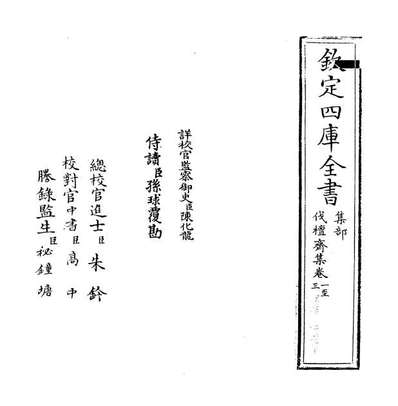 欽定四庫全書
集部
伐檀齋集卷一至三
詳校官監察御史臣陳化龍
侍讀臣孫球覆勘
總校官進士臣朱鈐
校對官中書臣高中
謄錄監生臣祕鐘塘